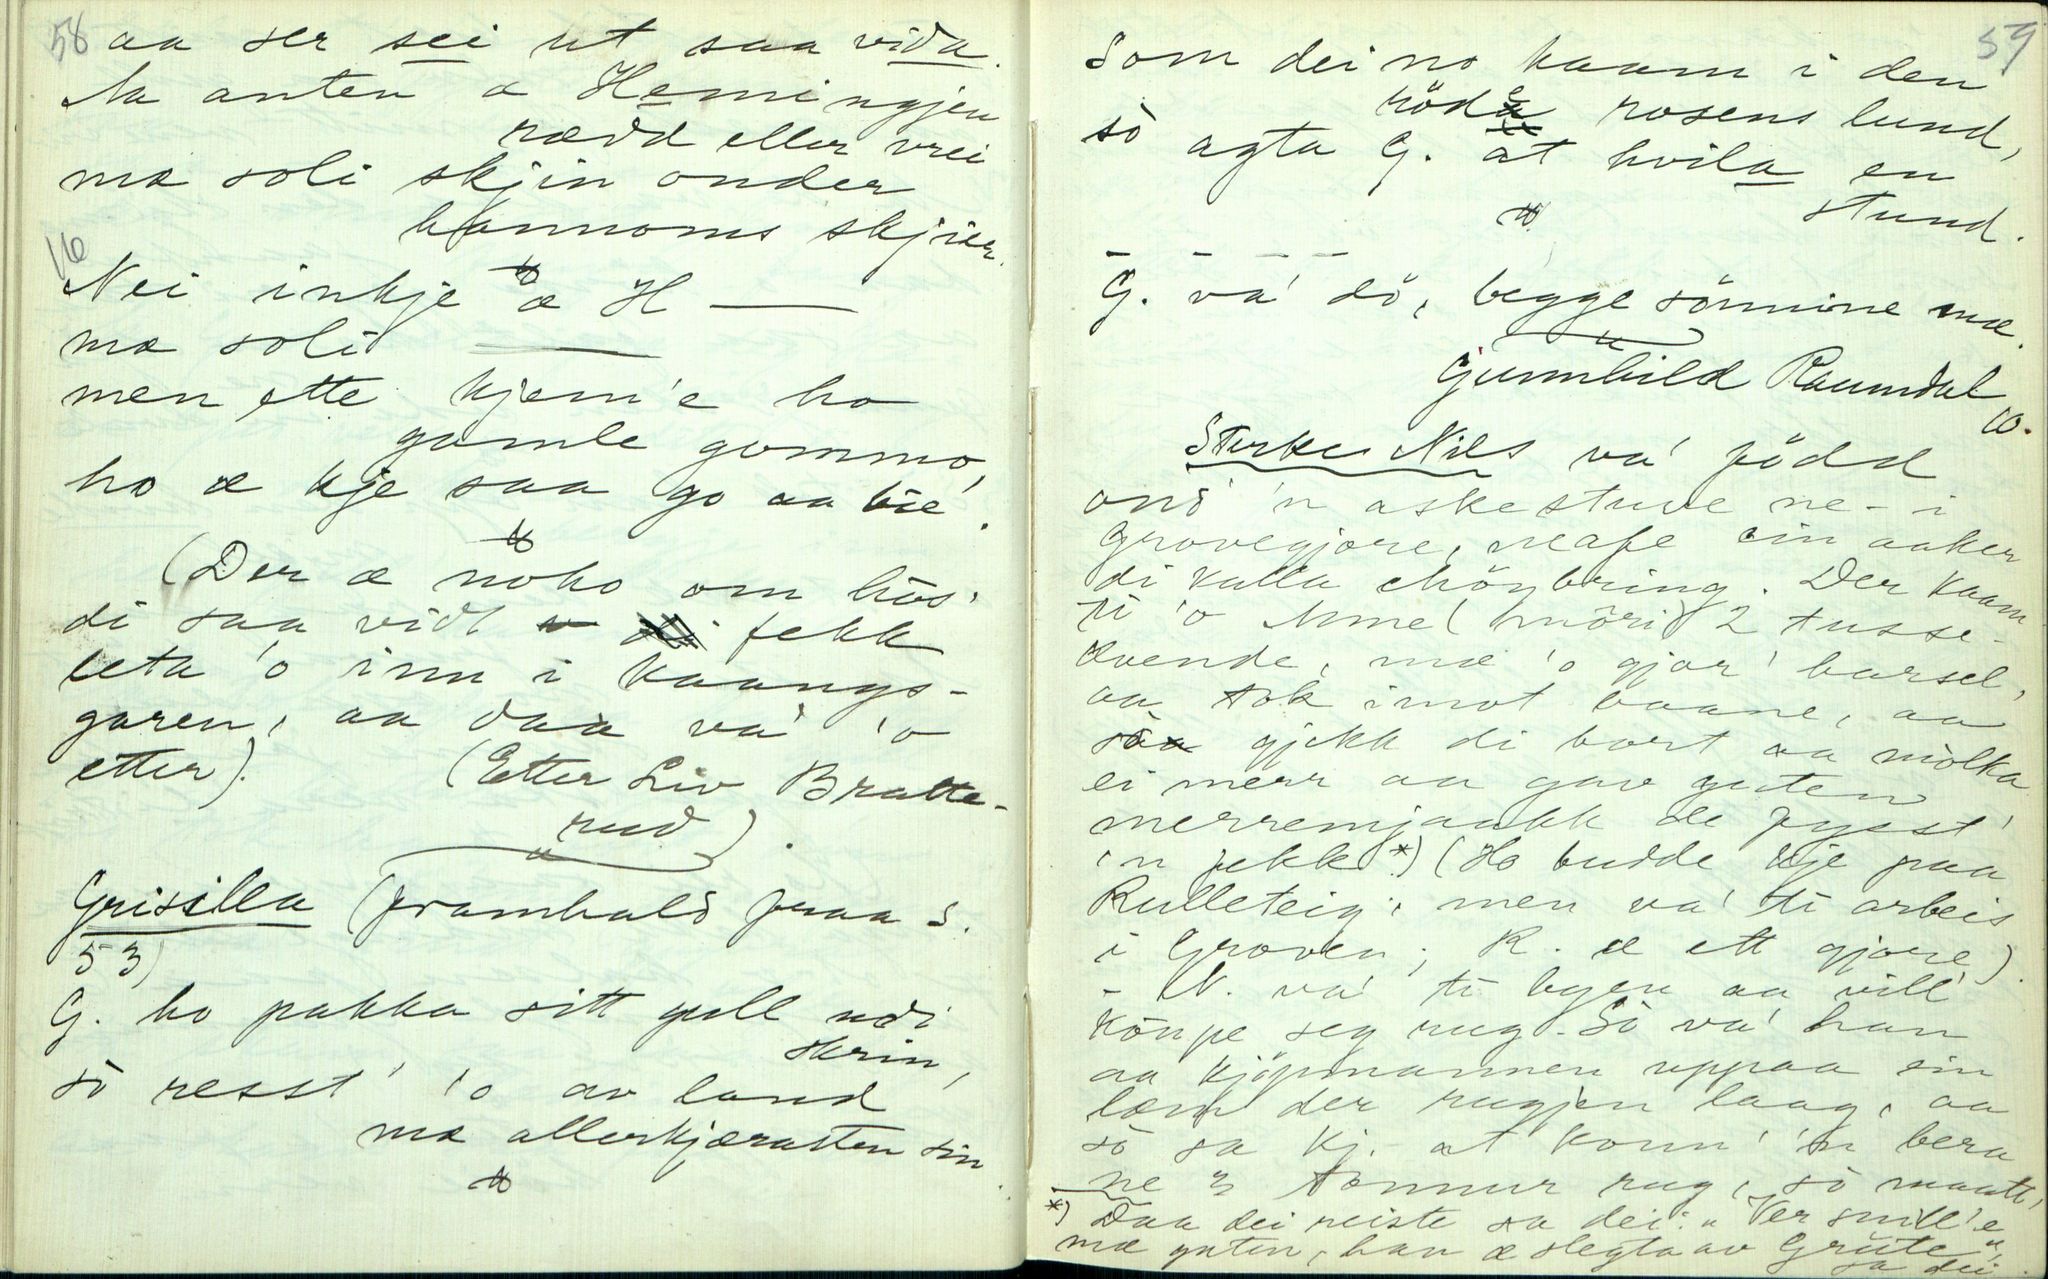 58
aa ser sei ut saa vida.
Aa anten æ Hemingjen
rædd eller vrei
mæ soli skjin onder
hannoms skjier.
16
Nei inkje æ H —
mæ soli —
men ette kjem'e ho
gamle gommo,
ho æ kje saa go aa bie'.
(Der æ noko om hús'
di saa vidt fekk
leta 'o inn i kaangs-
garen, aa daa va' 'o
etter). (Etter Liv Bratte-
rud).
Grisilla (framhald fraa s.
53)
G. ho pakka sitt gull udi
skrin,
sò resst' 'o av land
mæ allerkjærasten sin.
59
Som dei no kaam i den
röde rosens lund,
sò agta G. at hvila en
stund.
– – – – –
G. va' dö, begge sönnine mæ.
Gunnhild Raumdal
10.
Sterke Nils va' född
ond' 'n askestuve ne- i
Grovegjore, neafe ein aaker
di kalla Höybring. Der kaam
ti 'o 2 tusse-
kvende, mæ 'o gjor' barsel,
aa tok imot baane, aa
sò gjekk di bort aa mòlka
ei merr aa gav guten
merremjaakk de fysst'
'n fekk *) (Ho budde kje paa
Rulleteig, men va' ti arbeis
i Groven; R. æ ett gjore).
– N. va' ti byen aa vill'
köupe seg rug. Sò va' han
aa kjöpmannen uppaa ein
læm der rugjen laag, aa
sò sa kj. at konn' 'n bera
ne 3 tonnur rug, sò maatt'
*) Daa dei reiste sa dei: "Ver snill'e
mæ guten, han æ slegta av Grúte",
sa dei.